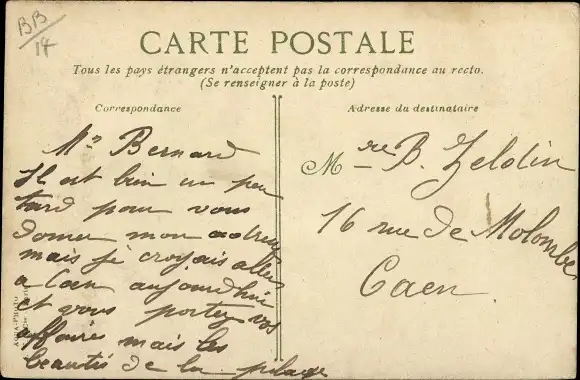 BB
14
CARTE POSTALE
Tous les pays étrangers n'acceptent pas la correspondance au recto.
(Se renseigner à la poste)
Correspondance
Mr Bernard
Il est bien un peu
tard pour vous
donner mon adresse
mais je croyais aller
a Caen aujourdhui
et vous porter vos
affaires mais les
beautés de la plage
Adresse du destinataire
Mre B. Zeldin
16 rue de
Caen.